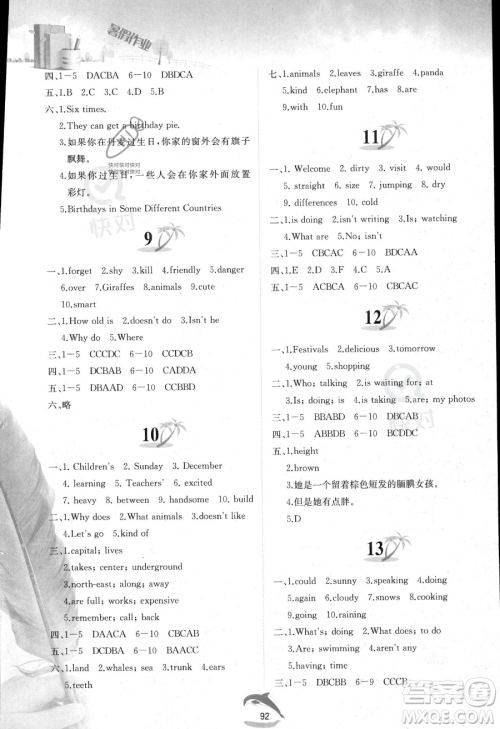 暑假作业
四、1－5 DACBA 6－10 DBDCA
五、1－5 DCABA 6－10 CBCBA
六、1.Six times.
2.They can get a birthday pie.
3.如果你在丹麦过生日,你家的窗外会有旗子
飘舞。
4.如果你过生日,一些人会在你家外面放置
彩灯。
5.Birthdays in Some Different Countries
9
一、1.forget 2.shy 3.kill 4.friendly 5.danger
6.over 7.Giraffes 8.animals 9.cute
10.smart
二、1.How old is 2.doesn't do 3.isn't he
4.Why do 5.Where
三、1－5 CCCDC 6－10 CDBDC
四、1－5 DCBAB 6－10 CADDA
五、1－5 DBAAD 6－10 CCBBD
六、略
10
一、1.Children's 2.Sunday 3.December
4.learning 5.Teachers' 6.excited
7.heavy 8.between 9.and 10.build
二、1.Why does 2.What animals 3.doesn't like
4.Let's go 5.kind of
三、1.capital; lives
2.takes; center; underground
3.north-east; along; away
4.are full; works; expensive
5.remember; call; down
四、1－5 DAACA 6－10 CBCAB
五、1－5 DCDBA 6－10 BAACC
六、1.land 2.whales; sea 3.trunk 4.ears
5.teeth
七、1.animals 2.leaves 3.giraffe 4.panda
5.kind 6.interesting 7.friendly 8.are
9.with 10.fun
11
一、1.Welcome 2.dirty 3.visit 4.world
5.straight 6.size 7.jumping 8.dry
9.differences 10.cold
二、1.is doing 2.isn't writing 3.Is; watching
4.What are 5.No; isn't
三、1－5 CBCBC 6－10 BDCAA
四、1.E 2.D 3.F 4.C 5.A
五、1－5 ACBCA 6－10 CBCAC
12
一、1.Festivals 2.delicious 3.tomorrow
4.young 5.shopping
二、1.Who; talking 2.is waiting for; at
3.Is; doing 4.is taking 5.are; my photos
三、1－5 BBABD 6－10 DBCAB
四、1－5 ABBDB 6－10 BCDDC
五、1.height
2.brown
3.她是一个留着棕色短发的腼腆女孩。
4.但是她有点胖。
5.D
13
一、1.could 2.sunny 3.speaking 4.doing
5.again 6.cloudy 7.snows 8.cooking
9.going 10.raining
二、1.What's; doing 2.What; doing
3.Are; swimming 4.aren't any
5.having; time
三、1－5 DBCBB 6－9 CCCB
92